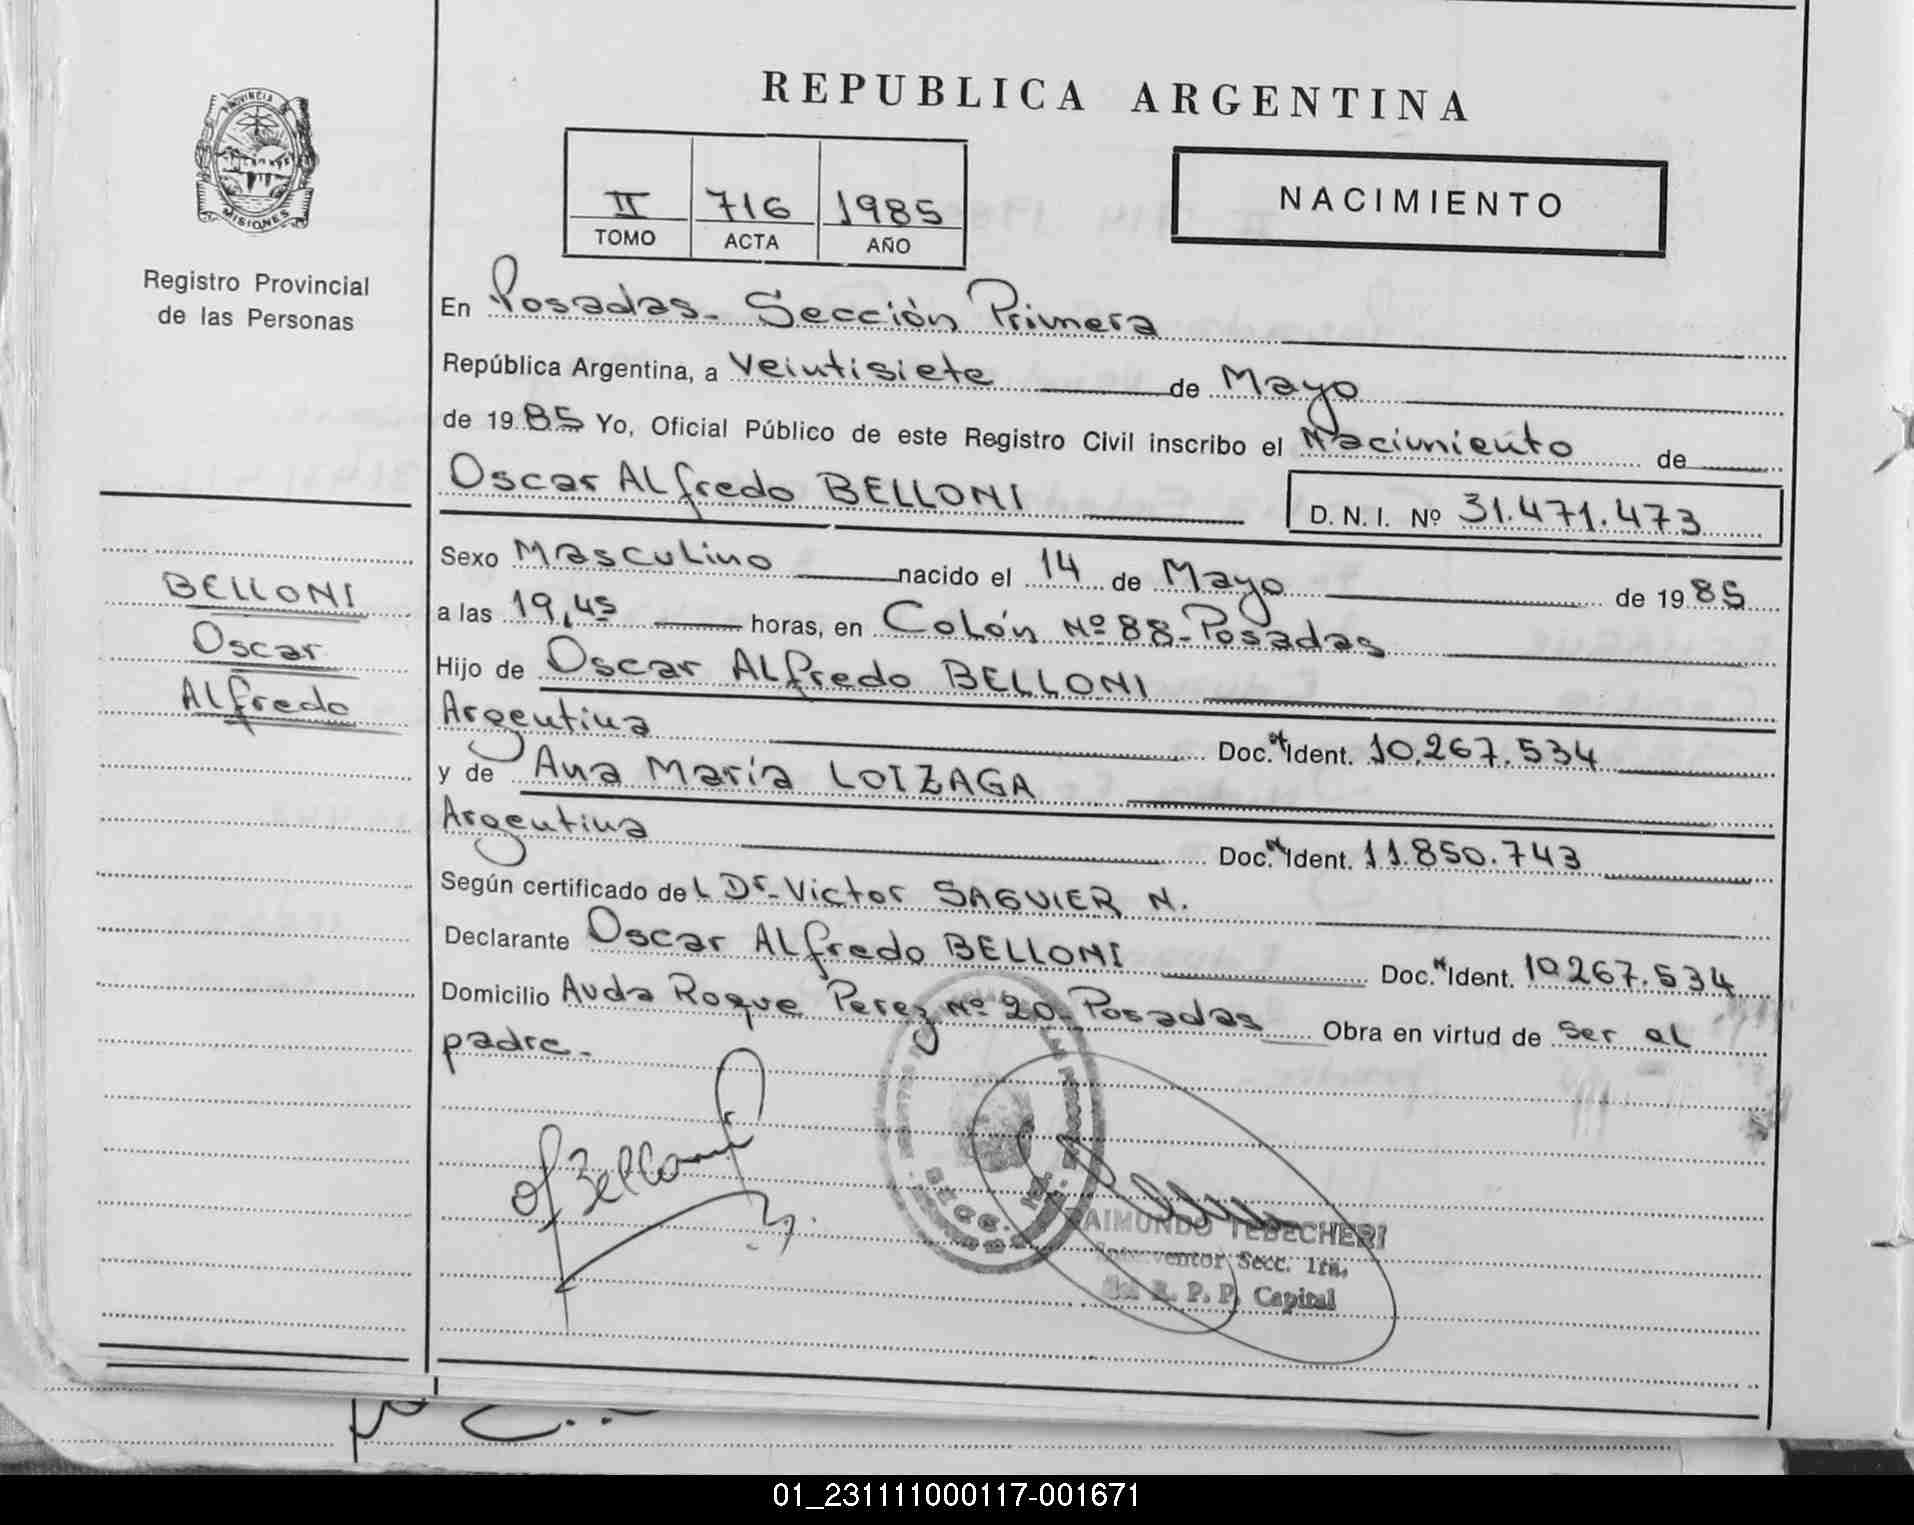 REPUBLICA ARGENTINA
PROVINCIA DE
MISIONES
Registro Provincial
de las Personas
II 716 1985
TOMO ACTA AÑO
NACIMIENTO
En Posadas - Sección Primera
República Argentina, a Veintisiete de Mayo
de 1985 Yo, Oficial Público de este Registro Civil inscribo el Nacimiento de
Oscar Alfredo BELLONI
D. N. I. Nº 31.471.473
BELLONI
Oscar
Alfredo
Sexo Masculino nacido el 14 de Mayo de 1985
a las 19,45 horas, en Colón Nº 88 - Posadas
Hijo de Oscar Alfredo BELLONI
Argentina Doc. Ident. 10.267.534
y de Ana María LOIZAGA
Argentina Doc. Ident. 11.850.743
Según certificado del Dr. Victor SAGUIER N.
Declarante Oscar Alfredo BELLONI Doc. Ident. 10.267.534
Domicilio Avda Roque Perez Nº 20 - Posadas Obra en virtud de ser el
padre.
RAIMUNDO TEBECHERI
Interventor Secc. 1ra.
R. P. P. Capital
01_231111000117-001671